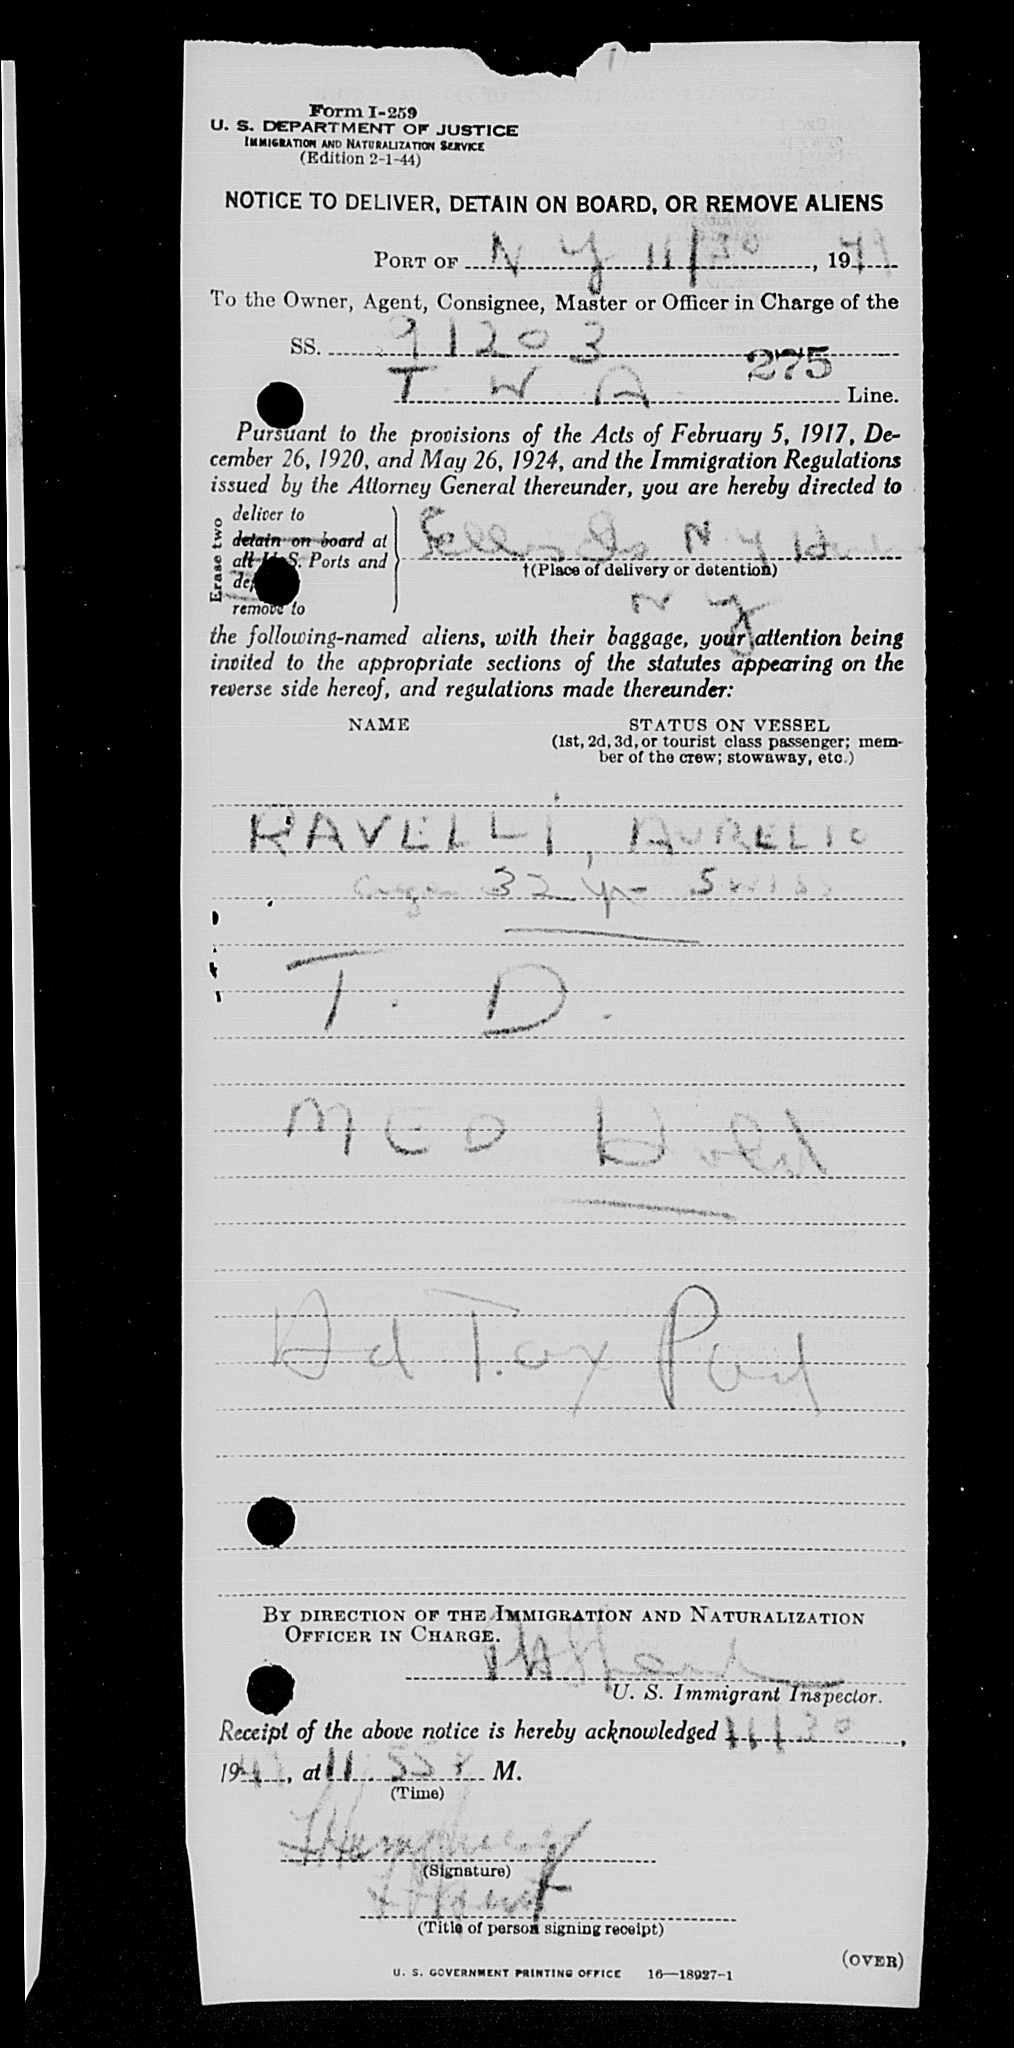 Form I-259
U. S. DEPARTMENT OF JUSTICE
IMMIGRATION AND NATURALIZATION SERVICE
(Edition 2-1-44)
NOTICE TO DELIVER, DETAIN ON BOARD, OR REMOVE ALIENS
PORT OF N Y 11/30, 19
To the Owner, Agent, Consignee, Master or Officer in Charge of the
SS. 91203
275
T W A Line.
Pursuant to the provisions of the Acts of February 5, 1917, De-
cember 26, 1920, and May 26, 1924, and the Immigration Regulations
issued by the Attorney General thereunder, you are hereby directed to
Erase two
deliver to
detain on board at
all U. S. Ports and
remove to
Ellis Is N Y
†(Place of delivery or detention)
N Y
the following-named aliens, with their baggage, your attention being
invited to the appropriate sections of the statutes appearing on the
reverse side hereof, and regulations made thereunder:
NAME STATUS ON VESSEL
(1st, 2d, 3d, or tourist class passenger; mem-
ber of the crew; stowaway, etc.)
RAVELLI, AURELIO
age 32 yr Swiss
T. D.
MED Hold
Hd Tax Paid
BY DIRECTION OF THE IMMIGRATION AND NATURALIZATION
OFFICER IN CHARGE.
U. S. Immigrant Inspector.
Receipt of the above notice is hereby acknowledged 11/30,
19, at 11:55 M.
(Time)
(Signature)
(Title of person signing receipt)
(OVER)
U. S. GOVERNMENT PRINTING OFFICE 16—18927-1